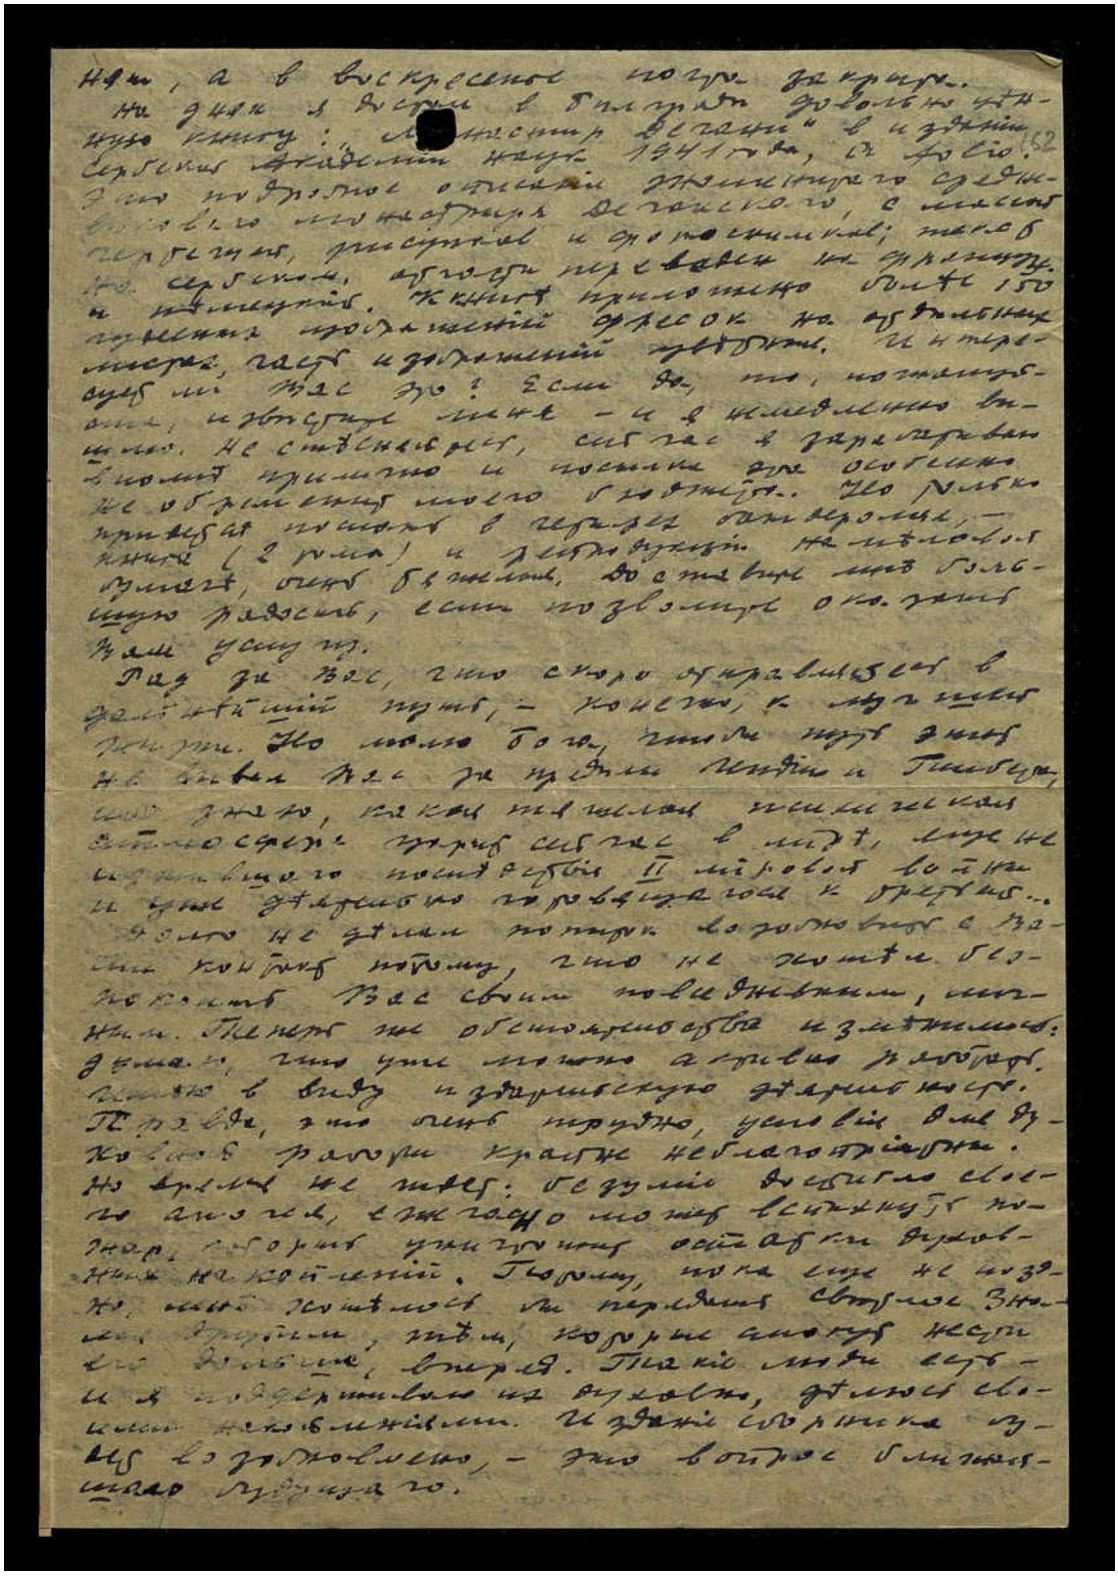 ней, а в воскресенье почта закрыта.
На днях я достал в Белграде довольно цѣн-
ную книгу: „Манастир Дечани" в издании
Сербской Академіи наук 1941 года, in folio.
Это подробное описаніе знаменитаго средне-
вѣковаго монастыря Дечанскаго, с массой
чертежей, рисунков и фотоснимков; текст
на сербском, отчасти переведен на француз.
и нѣмецкій. К книгѣ приложено болѣе 150
изображеній фресок на отдельных
листах, часть изображеній цвѣтные. Интере-
сует ли Вас это? Если да, то, пожалуй-
ста, известите меня – и я немедленно вы-
шлю. Не стѣсняйтесь, сейчас я зарабатываю
вполнѣ прилично и посылка эта особенно
не обременит моего бюджета. Но только
придется послать в четырех бандеролях, –
книга (2 тома) и репродукціи на мѣловой
бумагѣ, очень тяжелые. Доставите мнѣ боль-
шую радость, если позволите оказать
Вам услугу.
Рад за Вас, что скоро отправляетесь в
дальнѣйшій путь, – конечно, к лучшей
жизни. Но молю Бога, чтобы путь этот
не вывел Вас за предѣлы Индіи и Тибета,
ибо знаю, какая тяжелая психическая
атмосфера царит сейчас в мірѣ, еще не
изжившаго послѣдствія II міровой войны
и уже дѣятельно готовящагося к третьей...
Долго не дѣлал попыток возобновить с Ва-
ми контакт потому, что не хотѣл без-
покоить Вас своим повседневным, лич-
ным. Теперь же обстоятельства измѣнились:
думаю, что уже можно активно работать.
Имѣю в виду издательскую дѣятельность.
Правда, это очень трудно, условія для ду-
ховной работы крайне неблагопріятны.
Но время не ждет: безуміе достигло свое-
го апогея, ежечасно может вспыхнуть по-
жар, который уничтожит остатки духов-
ных накопленій. Поэтому, пока еще не позд-
но, мнѣ хотѣлось бы передать свѣтлое Зна-
ніе другим, тѣм, которые смогут нести
его дальше, вперед. Такіе люди есть –
и я поддерживаю их духовно, дѣлюсь сво-
ими накопленіями. Изданіе сборника бу-
дет возобновлено, – это вопрос ближай-
шаго будущаго.